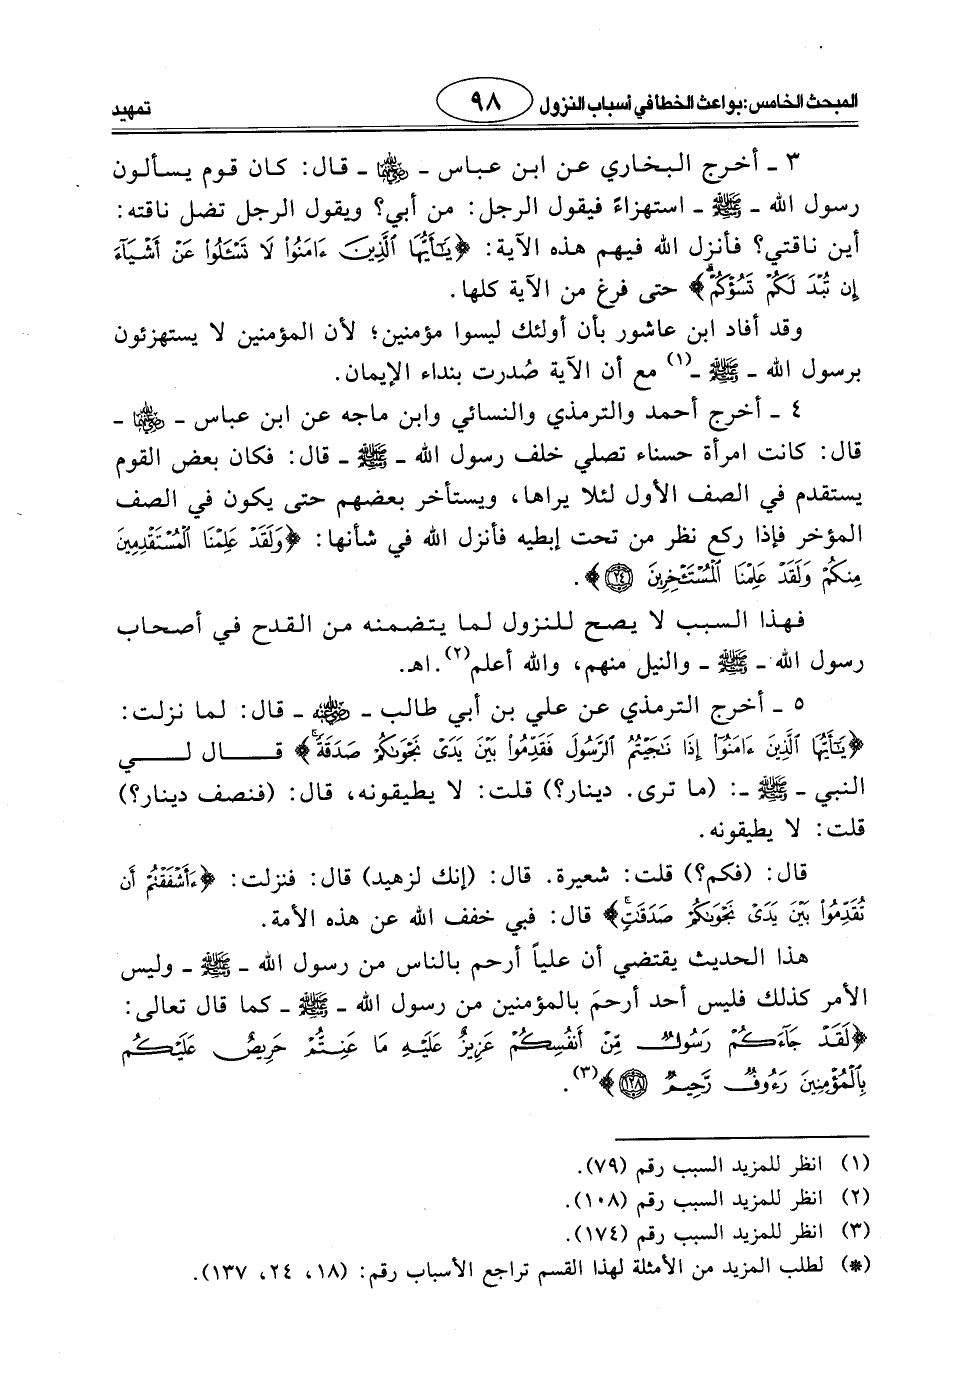 المبحث الخامس: بواعث الخطأ في أسباب النزول ٩٨ تمهيد
٣ ـ أخرج البخاري عن ابن عباس ـ رضي الله عنهما ـ قال: كان قوم يسألون
رسول الله ـ ﷺ ـ استهزاءً فيقول الرجل: من أبي؟ ويقول الرجل تضل ناقته:
أين ناقتي؟ فأنزل الله فيهم هذه الآية: ﴿يَٰٓأَيُّهَا ٱلَّذِينَ ءَامَنُوا۟ لَا تَسْـَٔلُوا۟ عَنْ أَشْيَآءَ
إِن تُبْدَ لَكُمْ تَسُؤْكُمْ﴾ حتى فرغ من الآية كلها.
وقد أفاد ابن عاشور بأن أولئك ليسوا مؤمنين؛ لأن المؤمنين لا يستهزئون
برسول الله ـ ﷺ ـ(١) مع أن الآية صُدرت بنداء الإيمان.
٤ ـ أخرج أحمد والترمذي والنسائي وابن ماجه عن ابن عباس ـ رضي الله عنهما ـ
قال: كانت امرأة حسناء تصلي خلف رسول الله ـ ﷺ ـ قال: فكان بعض القوم
يستقدم في الصف الأول لئلا يراها، ويستأخر بعضهم حتى يكون في الصف
المؤخر فإذا ركع نظر من تحت إبطيه فأنزل الله في شأنها: ﴿وَلَقَدْ عَلِمْنَا ٱلْمُسْتَقْدِمِينَ
مِنكُمْ وَلَقَدْ عَلِمْنَا ٱلْمُسْتَـْٔخِرِينَ ٢٤﴾.
فهذا السبب لا يصح للنزول لما يتضمنه من القدح في أصحاب
رسول الله ـ ﷺ ـ والنيل منهم، والله أعلم(٢).اهـ.
٥ ـ أخرج الترمذي عن علي بن أبي طالب ـ رضي الله عنه ـ قال: لما نزلت:
﴿يَٰٓأَيُّهَا ٱلَّذِينَ ءَامَنُوٓا۟ إِذَا نَٰجَيْتُمُ ٱلرَّسُولَ فَقَدِّمُوا۟ بَيْنَ يَدَىْ نَجْوَىٰكُمْ صَدَقَةً﴾ قال لي
النبي ـ ﷺ ـ: (ما ترى. دينار؟) قلت: لا يطيقونه، قال: (فنصف دينار؟)
قلت: لا يطيقونه.
قال: (فكم؟) قلت: شعيرة. قال: (إنك لزهيد) قال: فنزلت: ﴿ءَأَشْفَقْتُمْ أَن
تُقَدِّمُوا۟ بَيْنَ يَدَىْ نَجْوَىٰكُمْ صَدَقَٰتٍ﴾ قال: فبي خفف الله عن هذه الأمة.
هذا الحديث يقتضي أن علياً أرحم بالناس من رسول الله ـ ﷺ ـ وليس
الأمر كذلك فليس أحد أرحمَ بالمؤمنين من رسول الله ـ ﷺ ـ كما قال تعالى:
﴿لَقَدْ جَآءَكُمْ رَسُولٌ مِّنْ أَنفُسِكُمْ عَزِيزٌ عَلَيْهِ مَا عَنِتُّمْ حَرِيصٌ عَلَيْكُم
بِٱلْمُؤْمِنِينَ رَءُوفٌ رَّحِيمٌ ١٢٨﴾(٣).
(١) انظر للمزيد السبب رقم (٧٩).
(٢) انظر للمزيد السبب رقم (١٠٨).
(٣) انظر للمزيد السبب رقم (١٧٤).
(*) لطلب المزيد من الأمثلة لهذا القسم تراجع الأسباب رقم: (١٨، ٢٤، ١٣٧).